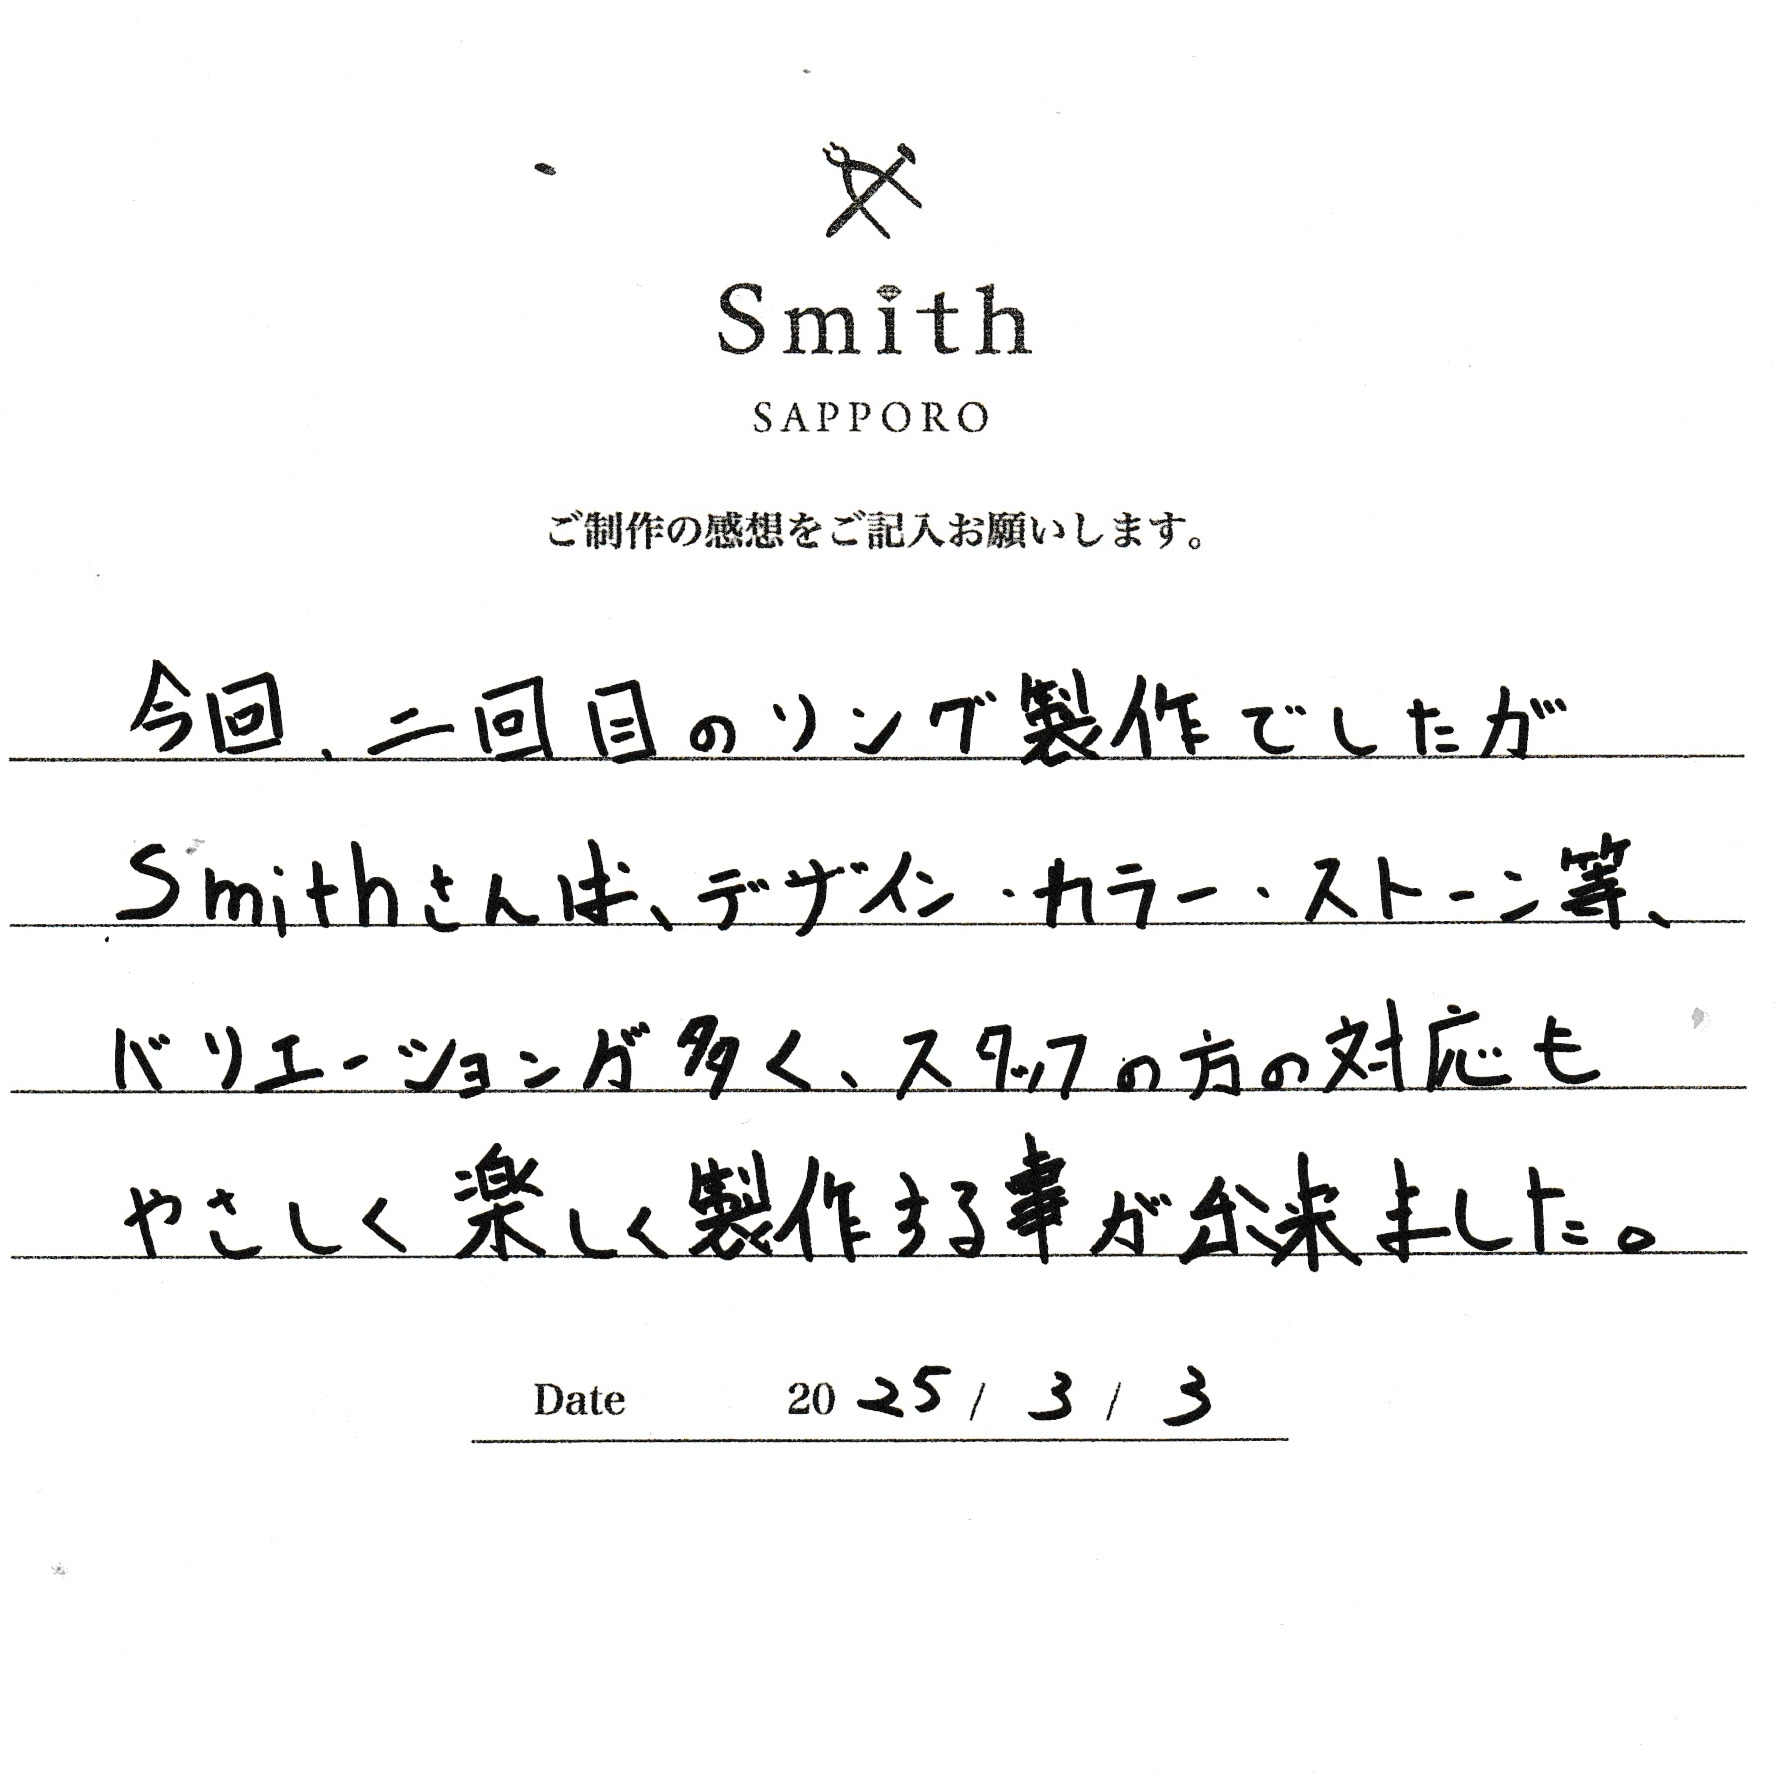 Smith
SAPPORO
ご制作の感想をご記入お願いします。
今回、二回目のリング製作でしたが
Smithさんは、デザイン・カラー・ストーン等、
バリエーションが多く、スタッフの方の対応も
やさしく楽しく製作する事が出来ました。
Date 2025/3/3